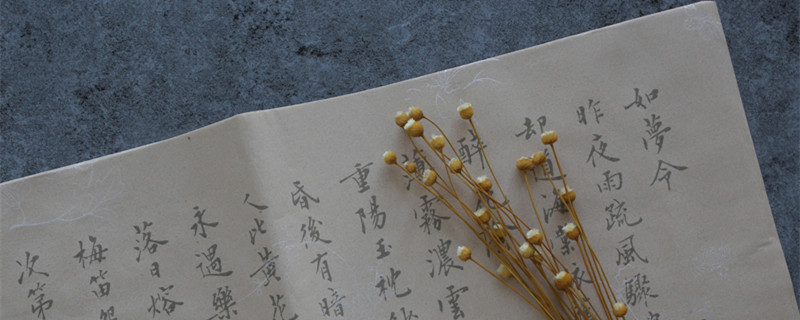 如夢令
昨夜雨疏風驟
却道海棠依
醉花陰
薄霧濃雲
重陽玉枕紗
昏後有暗
人比黃花
永遇樂
落日熔
梅笛怨
次第